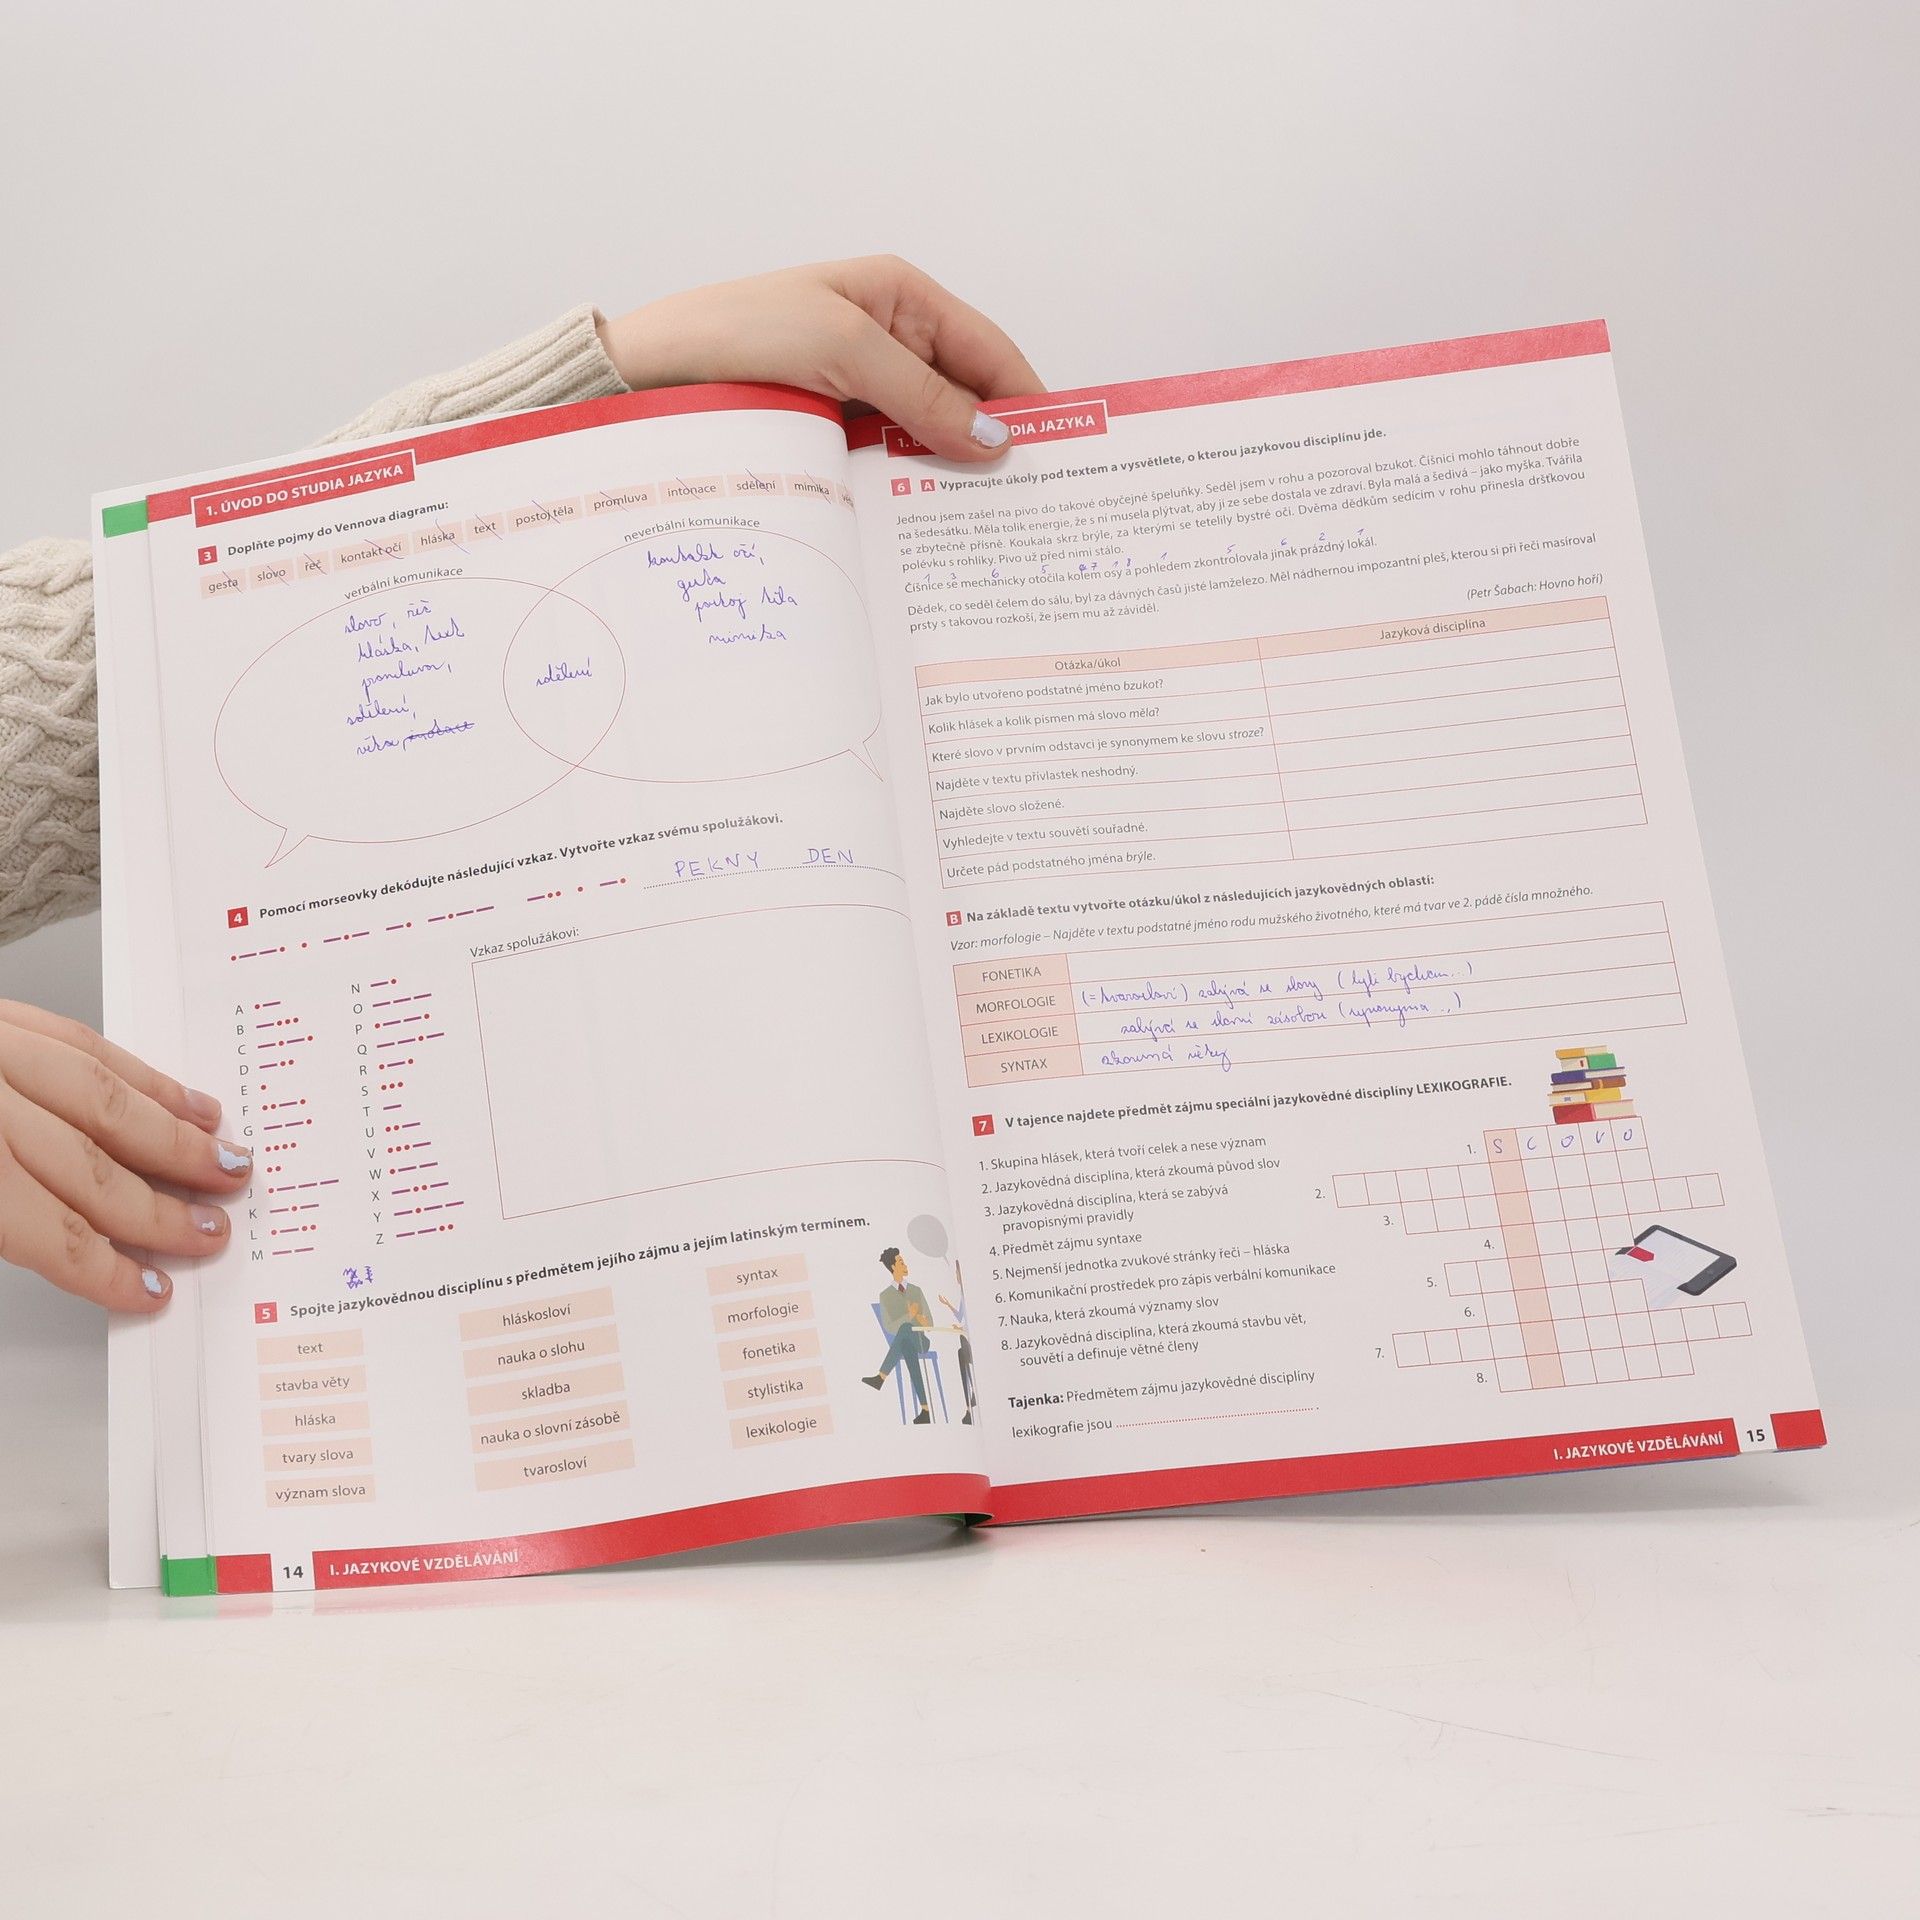 1. ÚVOD DO STUDIA JAZYKA
3 Doplňte pojmy do Vennova diagramu:
gesta slovo řeč kontakt očí hláska text postoj těla promluva intonace sdělení mimika
verbální komunikace
neverbální komunikace
slovo, řeč
hláska, text
promluva,
sdělení,
věta
sdělení
kontakt očí,
gesta
postoj těla
mimika
4 Pomocí morseovky dekódujte následující vzkaz. Vytvořte vzkaz svému spolužákovi.
PEKNY DEN
Vzkaz spolužákovi:
A
B
C
D
E
F
G
J
K
L
M
N
O
P
Q
R
S
T
U
V
W
X
Y
Z
5 Spojte jazykovědnou disciplínu s předmětem jejího zájmu a jejím latinským termínem.
text
stavba věty
hláska
tvary slova
význam slova
hláskosloví
nauka o slohu
skladba
nauka o slovní zásobě
tvarosloví
syntax
morfologie
fonetika
stylistika
lexikologie
14 I. JAZYKOVÉ VZDĚLÁVÁNÍ
DIA JAZYKA
6 A Vypracujte úkoly pod textem a vysvětlete, o kterou jazykovou disciplínu jde.
Jednou jsem zašel na pivo do takové obyčejné špeluňky. Seděl jsem v rohu a pozoroval bzukot. Číšnici mohlo táhnout dobře
na šedesátku. Měla tolik energie, že s ní musela plýtvat, aby ji ze sebe dostala ve zdraví. Byla malá a šedivá – jako myška. Tvářila
se zbytečně přísně. Koukala skrz brýle, za kterými se tetelily bystré oči. Dvěma dědkům sedícím v rohu přinesla dršťkovou
polévku s rohlíky. Pivo už před nimi stálo.
Číšnice se mechanicky otočila kolem osy a pohledem zkontrolovala jinak prázdný lokál.
Dědek, co seděl čelem do sálu, byl za dávných časů jistě lamželezo. Měl nádhernou impozantní pleš, kterou si při řeči masíroval
prsty s takovou rozkoší, že jsem mu až záviděl.
(Petr Šabach: Hovno hoří)
Otázka/úkol Jazyková disciplína
Jak bylo utvořeno podstatné jméno bzukot?
Kolik hlásek a kolik písmen má slovo měla?
Které slovo v prvním odstavci je synonymem ke slovu stroze?
Najděte v textu přívlastek neshodný.
Najděte slovo složené.
Vyhledejte v textu souvětí souřadné.
Určete pád podstatného jména brýle.
B Na základě textu vytvořte otázku/úkol z následujících jazykovědných oblastí:
Vzor: morfologie – Najděte v textu podstatné jméno rodu mužského životného, které má tvar ve 2. pádě čísla množného.
FONETIKA
MORFOLOGIE (=tvarosloví) zabývá se slovy (byli bychom...)
LEXIKOLOGIE zabývá se slovní zásobou (synonyma ..)
SYNTAX zkoumá věty
7 V tajence najdete předmět zájmu speciální jazykovědné disciplíny LEXIKOGRAFIE.
1. Skupina hlásek, která tvoří celek a nese význam
2. Jazykovědná disciplína, která zkoumá původ slov
3. Jazykovědná disciplína, která se zabývá
pravopisnými pravidly
4. Předmět zájmu syntaxe
5. Nejmenší jednotka zvukové stránky řeči – hláska
6. Komunikační prostředek pro zápis verbální komunikace
7. Nauka, která zkoumá významy slov
8. Jazykovědná disciplína, která zkoumá stavbu vět,
souvětí a definuje větné členy
Tajenka: Předmětem zájmu jazykovědné disciplíny
lexikografie jsou
1. S L O V O
2.
3.
4.
5.
6.
7.
8.
I. JAZYKOVÉ VZDĚLÁVÁNÍ 15